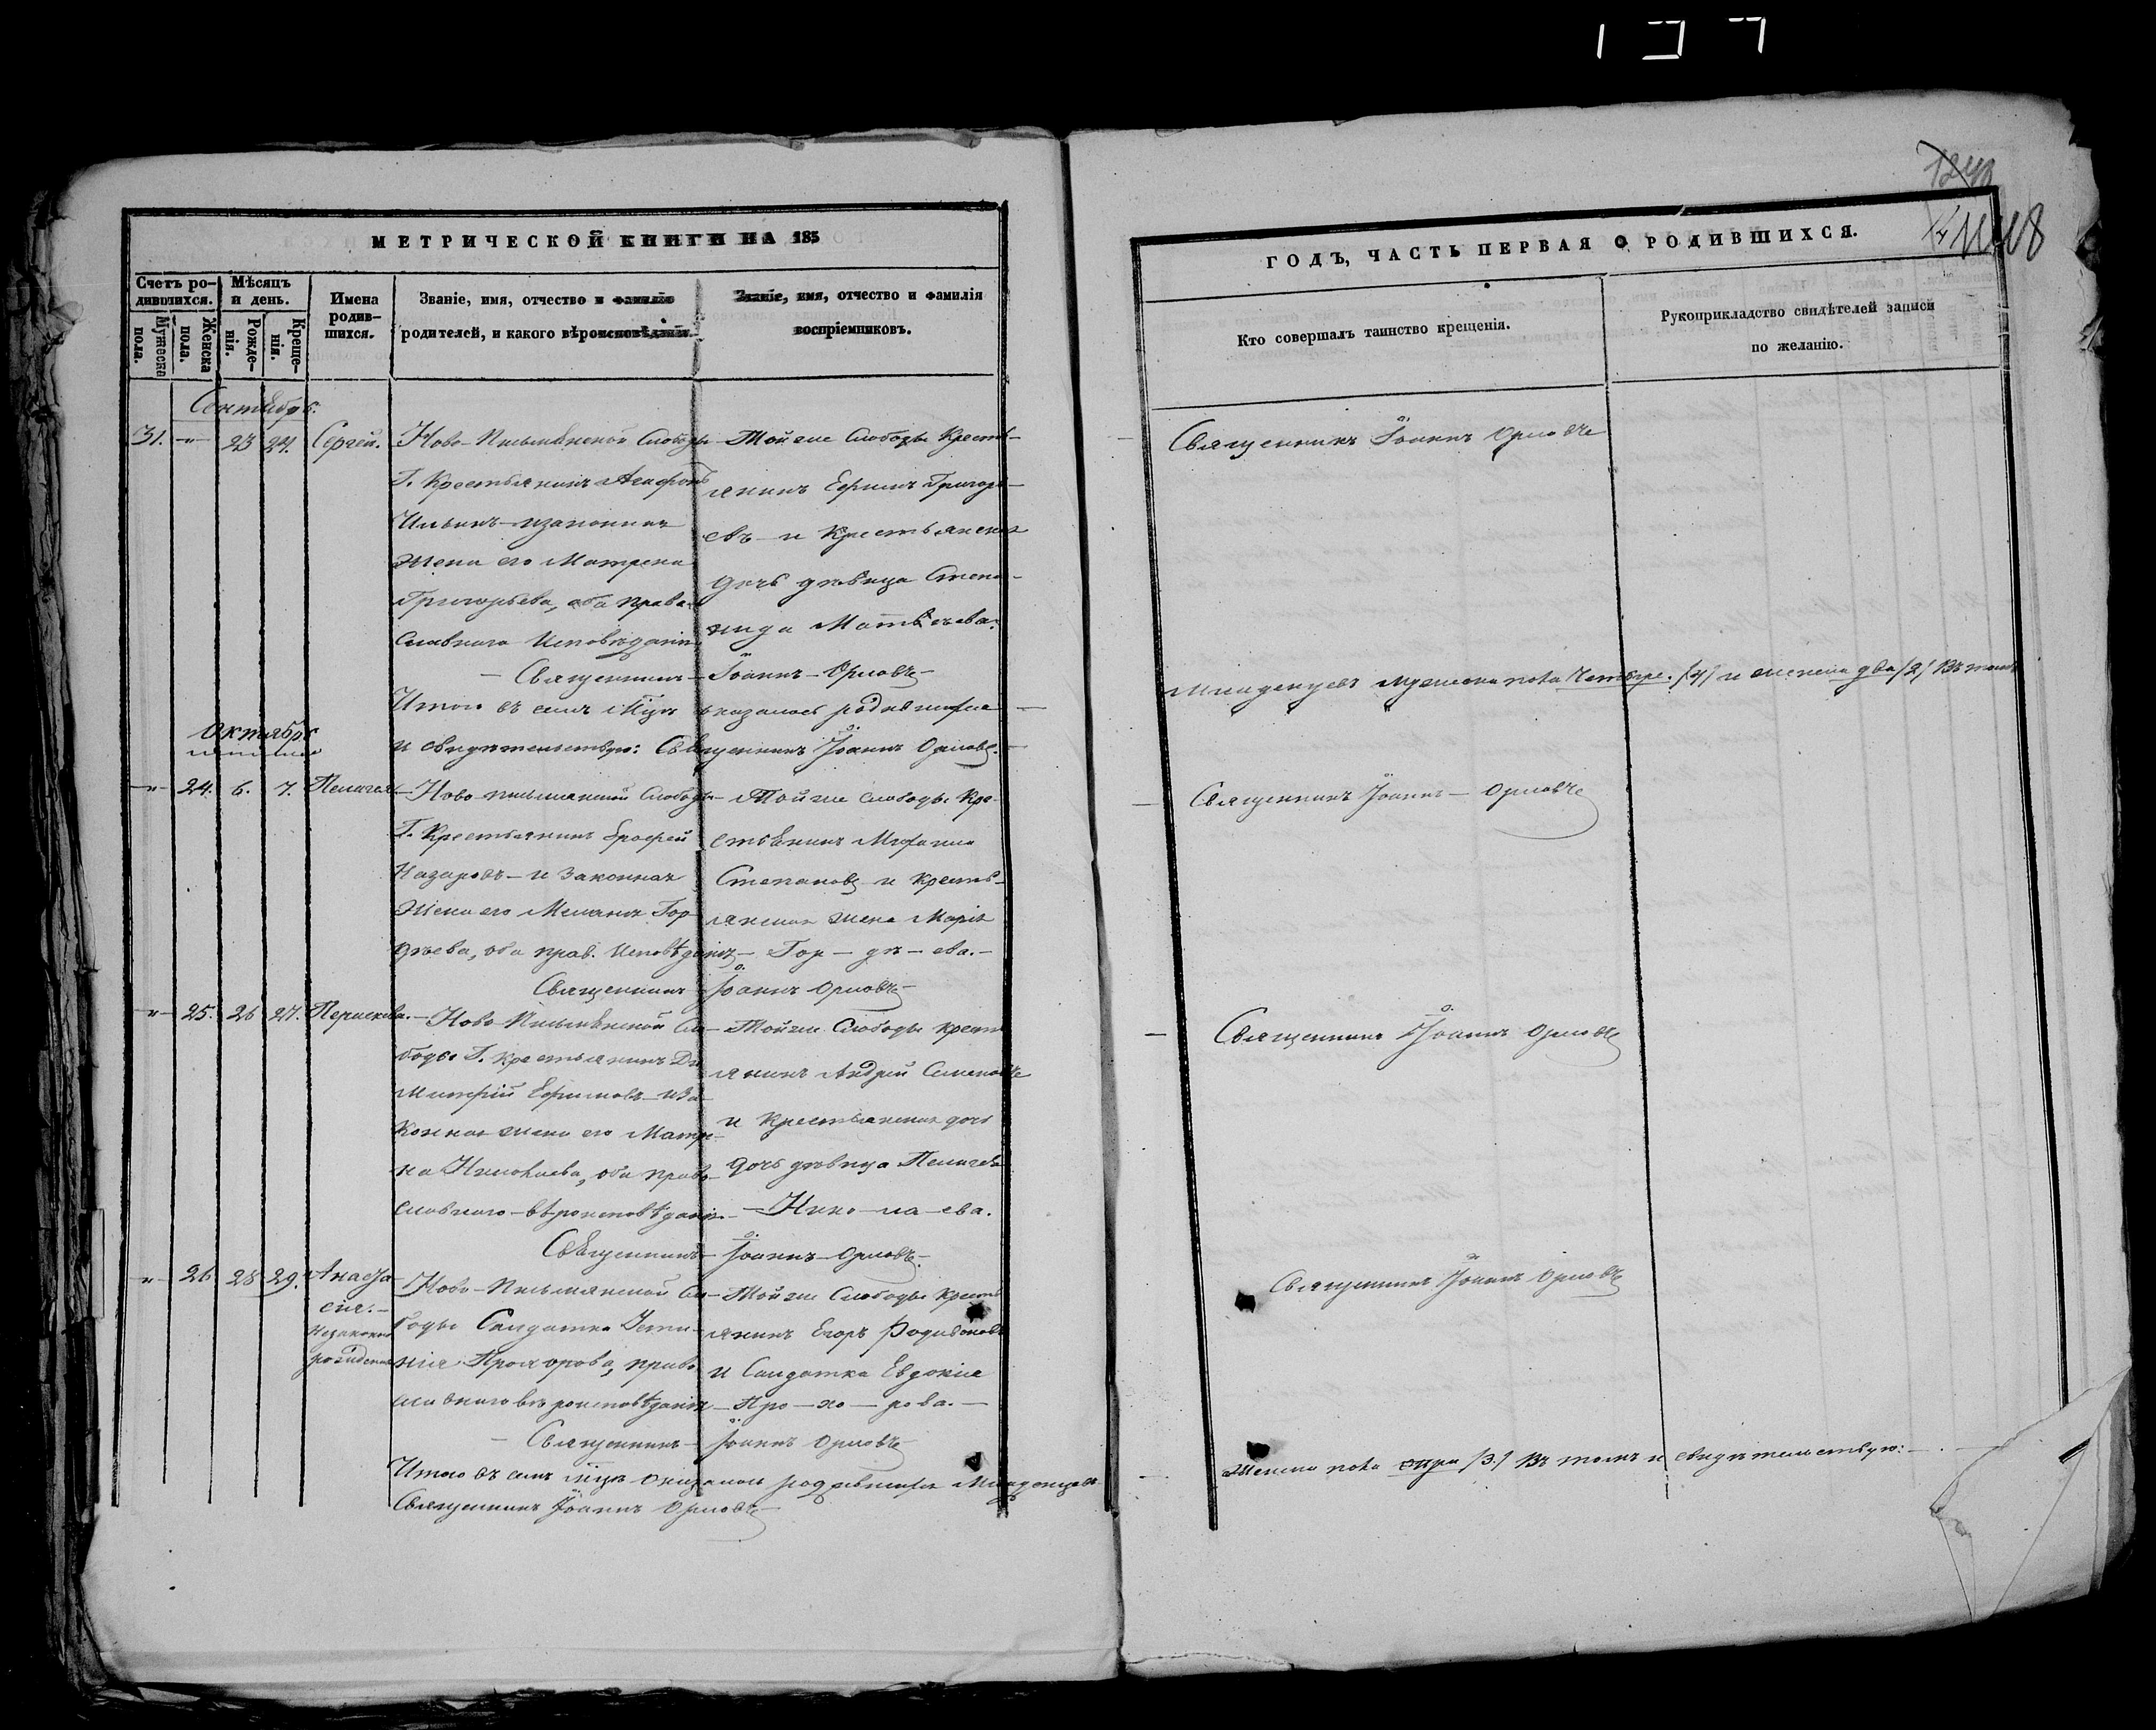 МЕТРИЧЕСКОЙ КНИГИ НА 185
Счетъ ро-
дившихся.
Мужеска
пола.
Женска
пола.
Мѣсяцъ
и день.
Рожде-
нія.
Креще-
нія.
Имена
родив-
шихся.
Званіе, имя, отчество и фамилія
родителей, и какого вѣроисповѣданія.
Званіе, имя, отчество и фамилія
воспріемниковъ.
Сентябрь.
31. -"- 23 24. Сергей.
Ново-Письмянской Слободы
Г. Крестьянинъ Агафонъ
Ильинъ - и законная
жена его Матрена
Григорьева, оба право-
славнаго исповѣданія
Той же Слободы Кресть-
янинъ Ефимъ Григорь-
евъ - и Крестьянская
дочь дѣвица Степа-
нида Матвѣева.
- Священникъ - Іоаннъ - Орловъ -
Итого въ семъ м-цѣ оказалось родившихся
и свидѣтельствую: Священникъ Іоаннъ Орловъ.
Октябрь
-"- 24. 6. 7. Пелагея.
Ново-письмянской Слободы
Г. Крестьянинъ Ерофей
Назаровъ - и Законная
Жена его Меланія Гор-
дѣева, оба прав. исповѣданія
Той же слободы Кре-
стьянинъ
Степановъ и Кресть-
янская жена Марія
- Гор - дѣ - ева. -
Священникъ Іоаннъ Орловъ -
-"- 25. 26 27. Параскева.
- Ново-Письмянской Сло-
боды Г. Крестьянинъ Ди-
митрій Ефимовъ - и за-
конная жена его Матре-
на Николаева, оба право-
славнаго - вѣроисповѣданія.
- Той же Слободы Кресть
янинъ Андрей Семеновъ
и Крестьянская дочь
дочь дѣвица Пелагея
- Нико - ла - ева.
Священникъ - Іоаннъ - Орловъ -
-"- 26 28 29. Анаста
сія. -
незаконно
рожденная
Ново-Письмянской Сло-
боды Солдатка Усти-
нія Прохорова, право
славнаго вѣроисповѣданія
- Той же Слободы Кресть
янинъ Егоръ Родивоновъ
и Солдатка Евдокія
- Про - хо - рова. -
- Священникъ - Іоаннъ Орловъ
Итого въ семъ м-цѣ оказалось родившихся Младенцевъ
Священникъ Іоаннъ Орловъ
ГОДЪ, ЧАСТЬ ПЕРВАЯ О РОДИВШИХСЯ.
Кто совершалъ таинство крещенія.
Рукоприкладство свидѣтелей записи
по желанію.
Священникъ Іоаннъ Орловъ
Младенцевъ мужеска пола Четыре. /4/ и женска два /2/ Въ томъ
Священникъ Іоаннъ - Орловъ
Священникъ Іоаннъ Орловъ
Священникъ Іоаннъ Орловъ
Женска пола три /3./ Въ томъ и свидѣтельствую: -